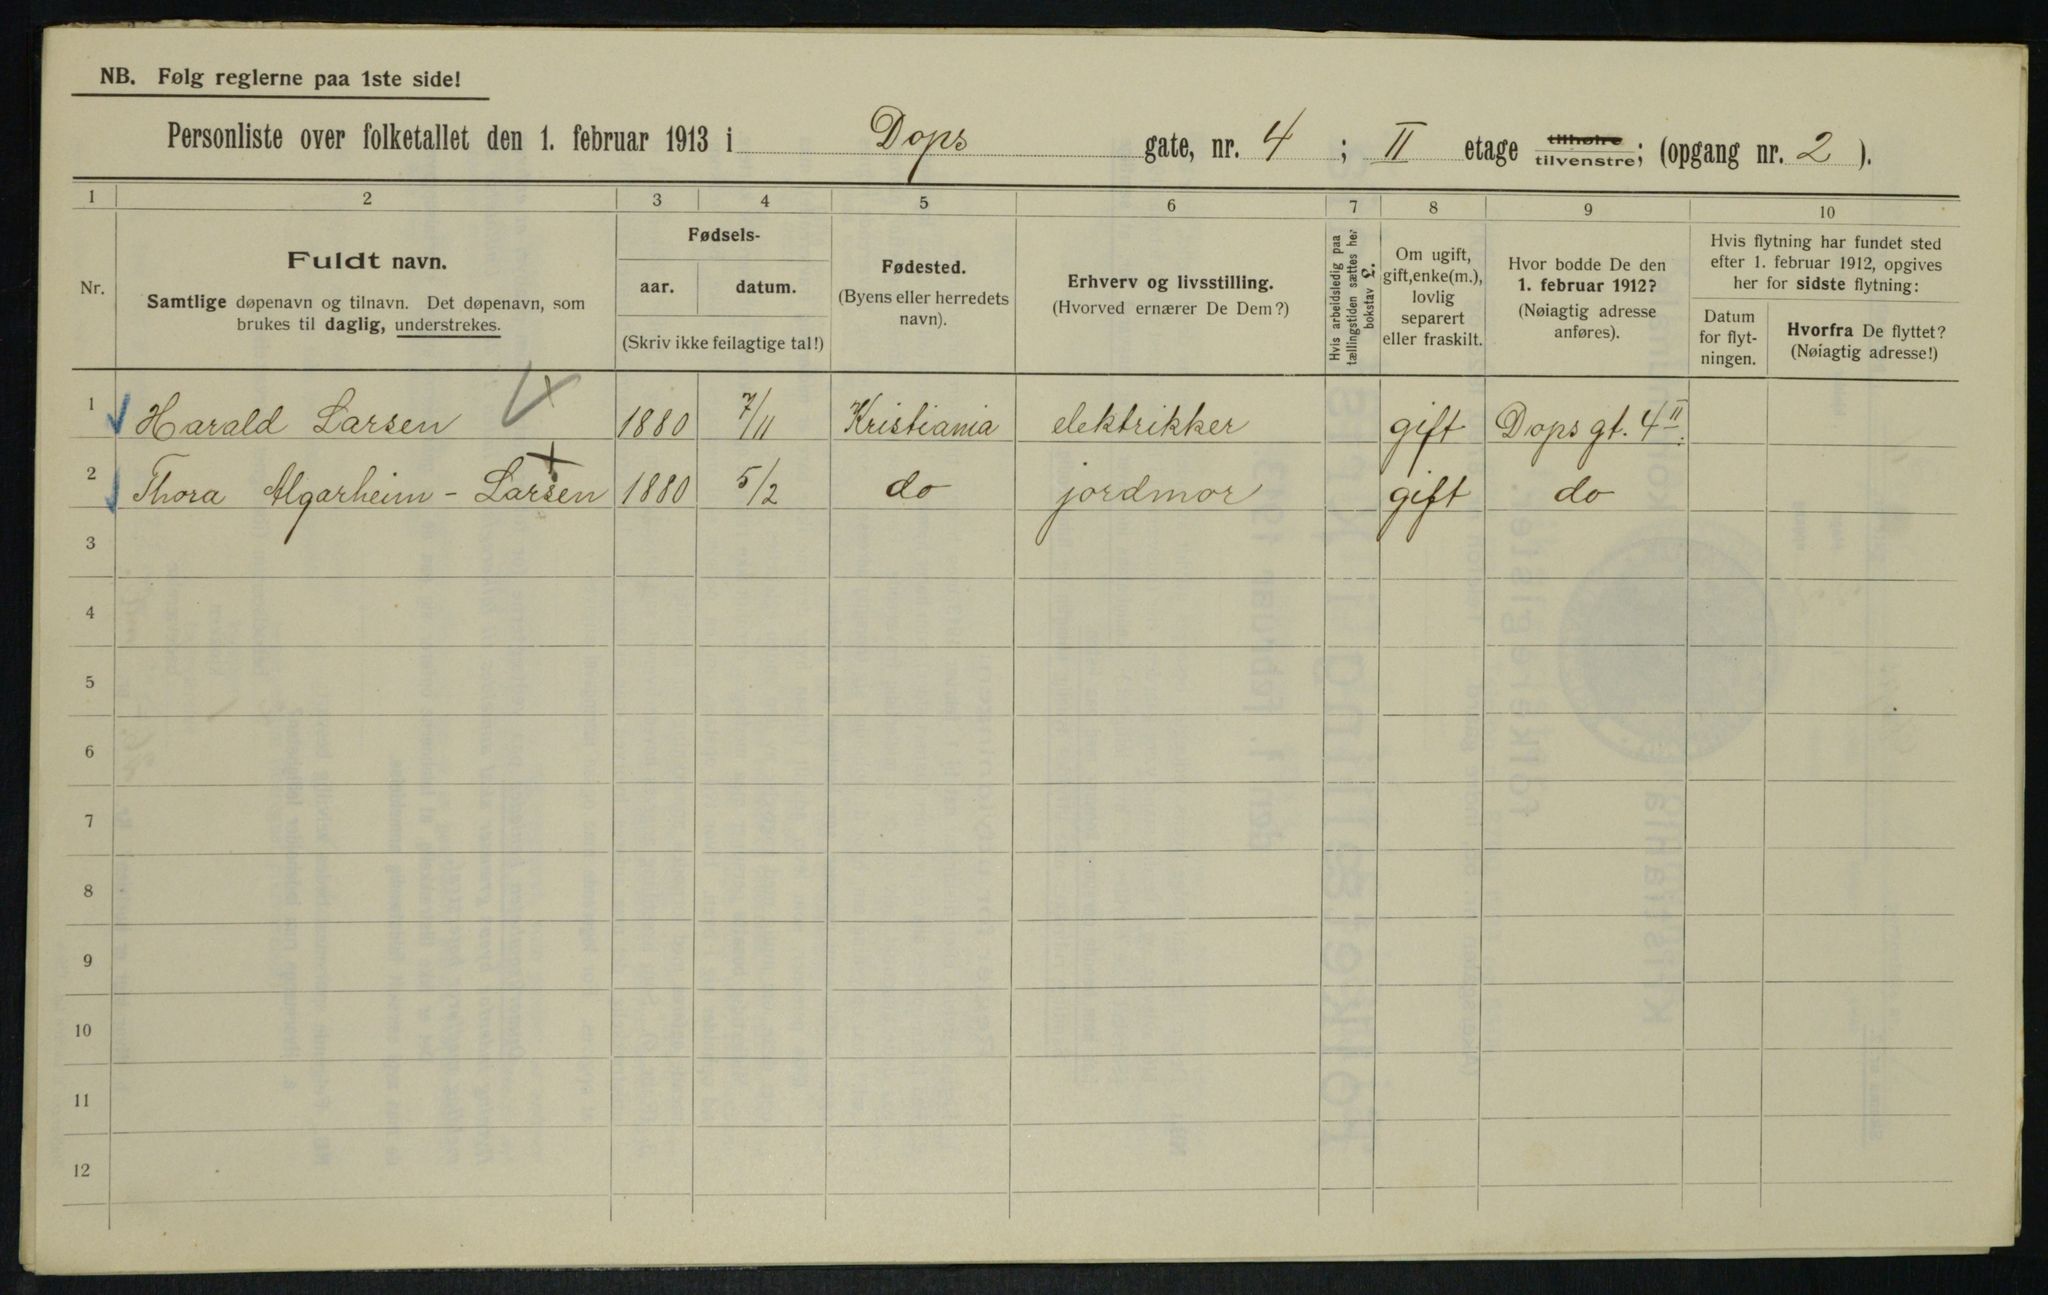 NB. Følg reglerne paa 1ste side!
Personliste over folketallet den 1. februar 1913 i Dops gate, nr. 4 ; II etage tilhøire tilvenstre; (opgang nr. 2 ).
1 2 3 4 5 6 7 8 9 10
Nr.
Fuldt navn.
Samtlige døpenavn og tilnavn. Det døpenavn, som
brukes til daglig, understrekes.
Fødsels-
aar. datum.
(Skriv ikke feilagtige tal!)
Fødested.
(Byens eller herredets
navn).
Erhverv og livsstilling.
(Hvorved ernærer De Dem?)
Hvis arbeidsledig paa
tællingstiden sættes her
bokstav L.
Om ugift,
gift, enke(m.),
lovlig
separert
eller fraskilt.
Hvor bodde De den
1. februar 1912?
(Nøiagtig adresse
anføres).
Hvis flytning har fundet sted
efter 1. februar 1912, opgives
her for sidste flytning:
Datum
for flyt-
ningen.
Hvorfra De flyttet?
(Nøiagtig adresse!)
1 Harald Larsen 1880 7/11 Kristiania elektrikker gift Dops gt. 4 II
2 Thora Algarheim - Larsen 1880 5/2 do jordmor gift do
3
4
5
6
7
8
9
10
11
12